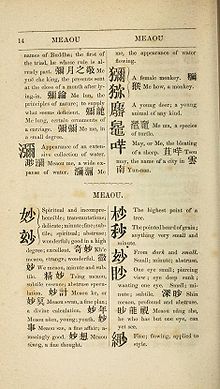 14 MEAOU MEAOU
names of Buddha; the first of
the triad, he whose rule is al-
ready past. 彌月之敬 Me
yuě che king, presents sent
at the close of a month after ly-
ing-in. 彌綸 Me lun, the
principles of nature; to supply
what seems deficient. 彌龍
Me lung, certain ornaments of
a carriage. 彌彌 Me me, in
a small degree.
瀰
Appearance of an exten-
sive collection of water.
Meaou. Water deep and
wide. 瀰瀰 Me
me, the appearance of water
flowing.
獼
A female monkey. 獼
猴 Me how, a monkey.
A young deer; a young
animal of any kind.
Me urh, a species
of dragon.
咩
May, or Me, the bleating
of a sheep. 苴咩 Tseu
may, the name of a city in 雲
南 Yun-nan.
MEAOU.
妙
Spiritual and incompre-
hensible; transmutations;
delicate; minute; fine; sub-
tile; abstruse; spiritual;
wonderfully good in a high
degree; excellent. 奇妙 Ke
meaou, strange; wonderful. 微
妙 We meaou, minute and sub-
tile. 精妙 Tsing meaou,
subtile essence; abstruse specu-
lation. 妙計 Meaou ke, or
妙算 Meaou swan, a fine plan;
a divine calculation. 妙年
Meaou nëen, young, youth. 妙
事 Meaou sze, a fine affair; a-
mazingly good. 妙想 Meaou
sëang, a fine thought.
杪
The highest point of a
tree.
秒
The pointed beard of grain;
anything very small and
minute.
眇
From dark and small.
Small; minute; abstruse.
One eye small; piercing
view; one eye deep sunk;
wanting one eye. Small; mi-
nute; subtile. 深眇 Shin
meaou, profound and abstruse.
眇能視 Meaou năng she,
he who has but one eye, can
yet see.
緲
Fine; flowing, applied to
style.